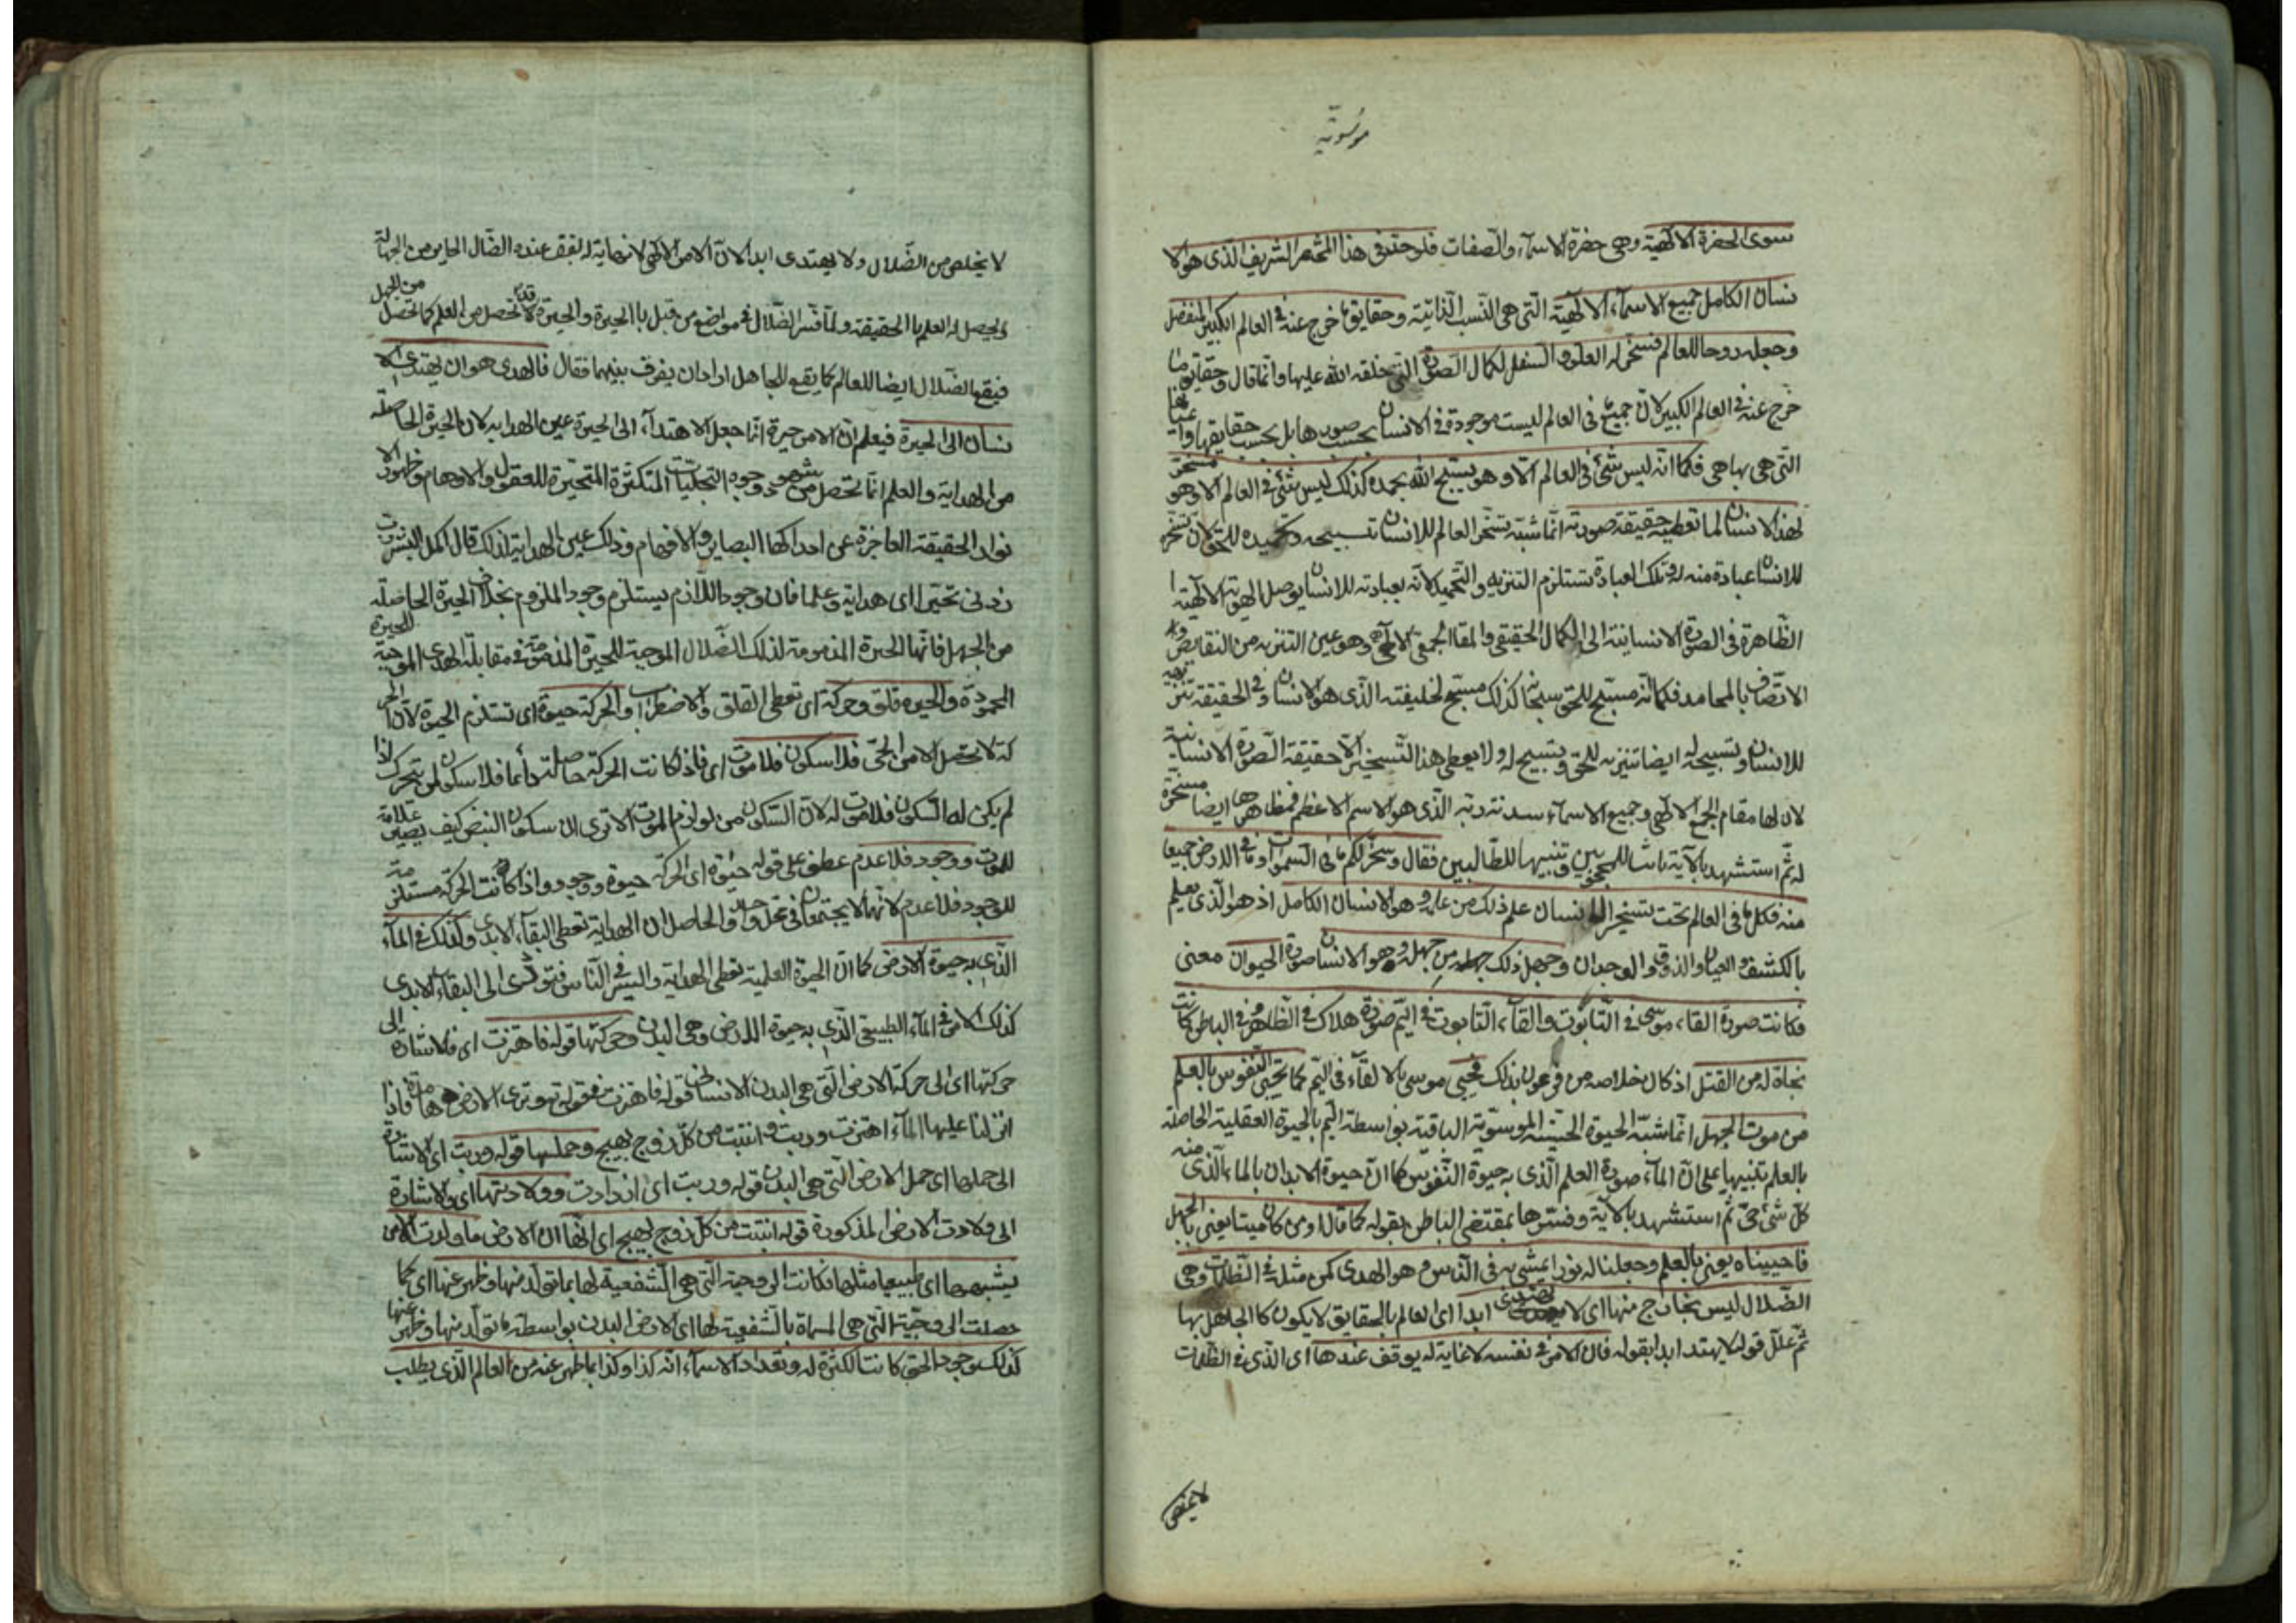 موسوية
سوى الحضرة الالهية وهى حضرة الاسماء والصفات فلوحقق فى هذا المختصر الشريف الذى هو الا
نسان الكامل جميع الاسماء الالهية التى هى النسب الذاتية وحقايق ما خرج عنه فى العالم الكبير المنفصل
وجعله روحا للعالم فسخر له العلو والسفل لكمال الصورة التى خلقه الله عليها وانما قال وحقايق ما
خرج عنه فى العالم الكبير لان جميع ما فى العالم ليست موجودة فى الانسان بحسب صورها بل بحسب حقايقها واعيانها
التى هى بها هى فكما انه ليس شئ فى العالم الا وهو يسبح الله بحمده كذلك ليس شئ فى العالم الا وهو مسخر
لهذا الانسان لما تعطيه حقيقة صورته انما شبه تسخر العالم للانسان تسبيحه وتحميده للحق لان تسخر
للانسان عبادة منه له وتلك العبادة تستلزم التنزيه والتحميد لانه بعبادته للانسان يوصل الهوية الالهية ا
الظاهرة فى الصورة الانسانية الى الكمال الحقيقى والمقام الجمعى الالهى وهو عين التنزيه من النقايص و
الاتصاف بالمحامد فكما انه مسبح للحق سبحانه كذلك مسبح لخليفته الذى هو الانسان وفى الحقيقة تنزيهه
للانسان وتسبيحه له ايضا تنزيه للحق وتسبيح له ولا يعطى هذا التسخير الا حقيقة الصورة الانسانية
لان لها مقام الجمع الالهى وجميع الاسماء سدنة ربه الذى هو الاسم الاعظم فمظاهرها ايضا مسخرة
له ثم استشهد بالآية للمحجوبين وتنبيها للطالبين فقال وسخر لكم ما فى السموات وما فى الارض جميعا
منه فكل ما فى العالم تحت تسخير الانسان علم ذلك من علمه وهو الانسان الكامل اذ هو الذى يعلم
بالكشف والعيان والذوق والوجدان وجهل ذلك من جهله وهو الانسان صورة الحيوان معنى
فكانت صورة القاء موسى فى التابوت والقاء التابوت فى اليم صورة هلاك فى الظاهر وفى الباطن كانت
نجاة له من القتل اذ كان خلاصه من فرعون بذلك فحيى موسى بالالقاء فى اليم كما تحيى النفوس بالعلم
من موت الجهل انما شبه الحيوة الحسية الموسوية الباقية بواسطة اليم بالحيوة العقلية الحاصلة
بالعلم تنبيها على ان الماء صورة العلم الذى به حيوة النفوس كما ان حيوة الابدان بالماء الذى منه
كل شئ حى ثم استشهد بالآية وفسرها بمقتضى الباطن بقوله كما قال او من كان ميتا يعنى بالجهل
فاحييناه يعنى بالعلم وجعلنا له نورا يمشى به فى الناس وهو الهدى كمن مثله فى الظلمات وهى
الضلال ليس بخارج منها اى لا يهتدى ابدا اى العالم بالحقايق لا يكون كالجاهل بها
ثم علل قوله لا يهتدى ابدا بقوله فان الامر فى نفسه لا غاية له يوقف عندها اى الذى فى الظلمات
لا يخلص
لا يخلص من الضلال ولا يهتدى ابدا لان الامر الالهى لا نهاية له ليقف عنده الضال الحاير من الجهالة
ويحصل له العلم بالحقيقة ولما فسر الضلال فى مواضع من قبل بالحيرة والحيرة قد تحصل من العلم كما تحصل من الجهل
فيقع الضلال ايضا للعالم كما يقع للجاهل اراد ان يفرق بينهما فقال فالهدى هو ان يهتدى الا
نسان الى الحيرة فيعلم ان الامر حيرة انما جعل الاهتداء الى الحيرة عين الهداية لان الحيرة الحاصلة
من الهداية والعلم انما تحصل من شهود وجوه التجليات المتكثرة المتحيرة للعقول والاوهام وظهور الا
نوار الحقيقة العاجزة عن ادراكها البصاير والافهام وذلك عين الهداية لذلك قال اكمل البشر رب
زدنى تحيرا اى هداية وعلما فان وجود اللازم يستلزم وجود الملزوم بخلاف الحيرة الحاصلة
من الجهل فانها الحيرة المذمومة لذلك الضلال الموجبة للحيرة المذمومة فى مقابلة الهدى الموجبة للحيرة
المحمودة والحيرة قلق وحركة اى تعطى القلق والاضطراب والحركة حيوة اى تستلزم الحيوة لان الحر
كة لا تحصل الا من الحى فلا سكون فلا موت اى فاذا كانت الحركة حاصلة دائما فلا سكون لمن يتحرك اذا
لم يكن له السكون فلا موت له لان السكون من لوازم الموت الا ترى ان سكون النبض كيف يصير علامة
للموت ووجود فلا عدم عطف على قوله حيوة اى الحركة حيوة ووجود واذا كانت الحركة مستلزمة
للوجود فلا عدم لانهما لا يجتمعان فى محل واحد والحاصل ان الهداية تعطى البقاء الابدى وكذلك فى الماء
الذى به حيوة الارض كما ان الحيوة العلمية تعطى الهداية والسير فى الناس فتؤدى الى البقاء الابدى
كذلك الامر فى الماء الطبيعى الذى به حيوة الارض وهى البدن وحركتها قوله فاهتزت اى فالاشارة الى
حركتها اى الى حركة الارض التى هى البدن الانسانى قوله فاهتزت فى قوله وترى الارض هامدة فاذا
انزلنا عليها الماء اهتزت وربت وانبتت من كل زوج بهيج وحملها قوله وربت اى الاشارة
الى حملها اى حمل الارض التى هى البدن قوله وربت اى ازدادت وولادتها اى والاشارة
الى ولادت الارض المذكورة قوله انبتت من كل زوج بهيج اى انها ان الارض ما ولدت الا من
يشبهها اى طبيعيا مثلها فكانت الزوجية التى هى الشفعية لها بما تولد منها وظهر عنها اى كما
حصلت الزوجية التى هى المسماة بالشفعية لها اى لارض البدن بواسطة ما تولد منها وظهر عنها
كذلك وجود الحق كانت الكثرة له وتعداد الاسماء انه كذا وكذا بما ظهر عنه من العالم الذى يطلب